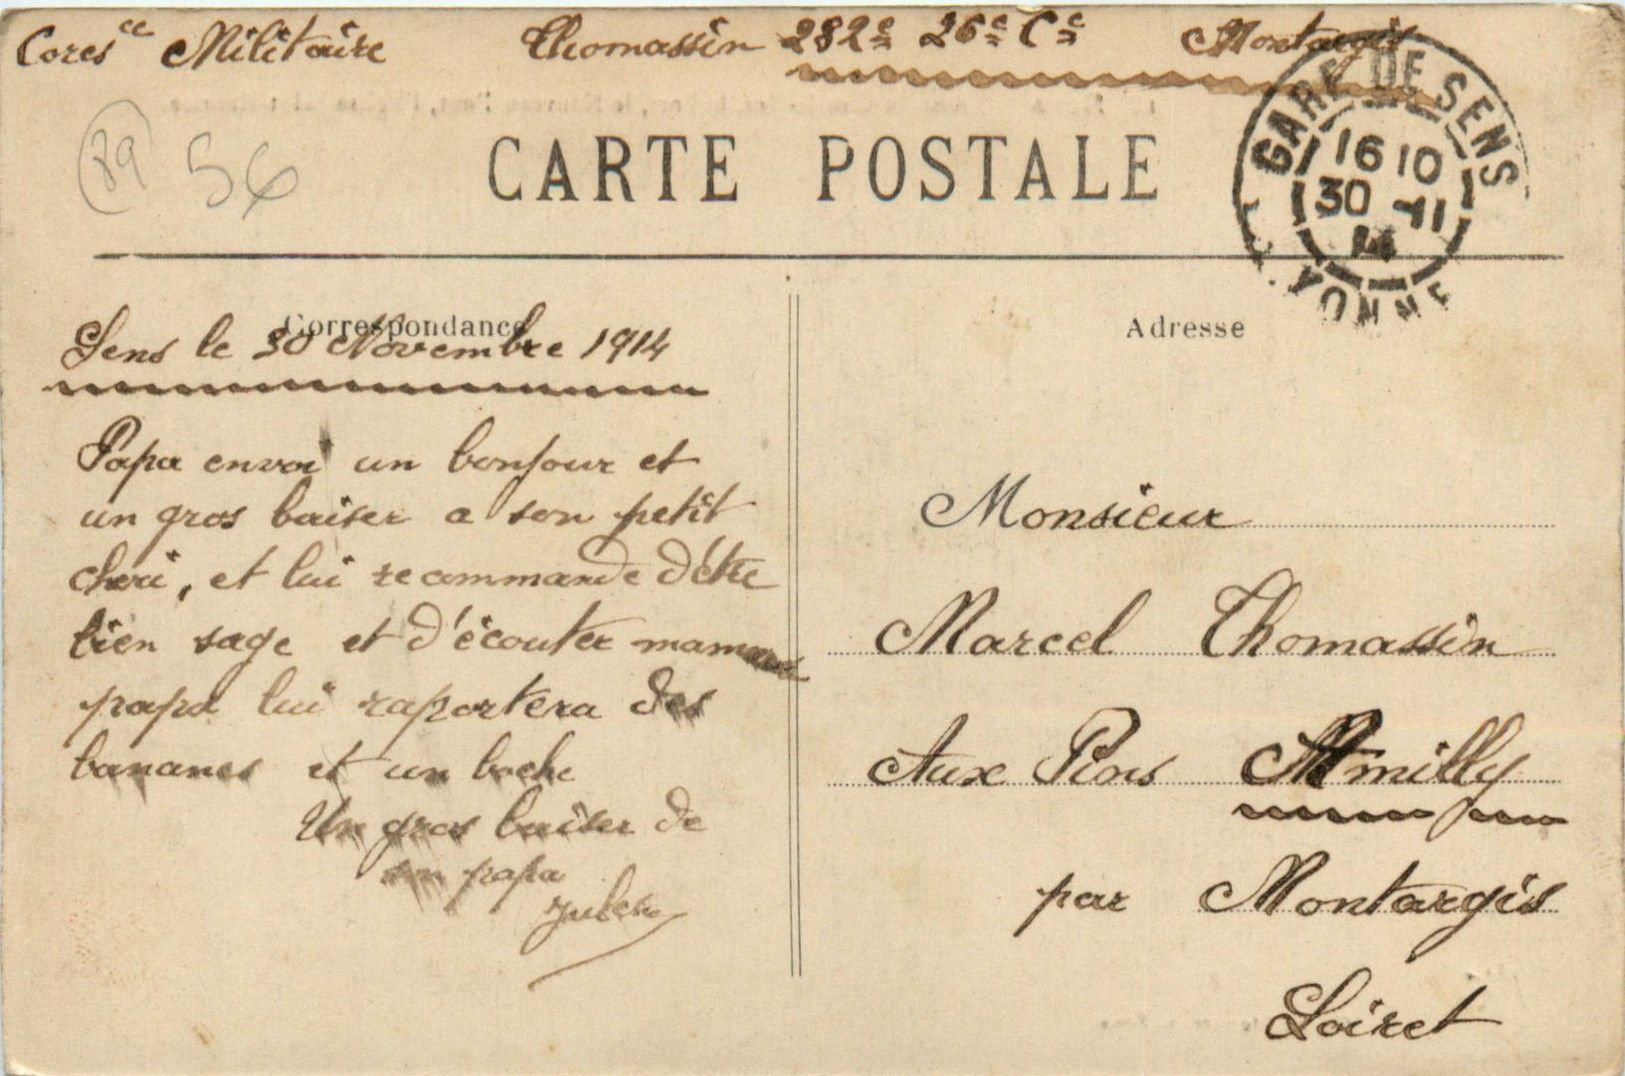 Cores ce Militaire Thomassin 282e 26e Cie Montargis
89 56
CARTE POSTALE
GARE DE SENS
16 10
30 -11
14
YONNE
Correspondance
Adresse
Sens le 30 Novembre 1914
Papa envoi un bonjour et
un gros baiser a son petit
cheri, et lui recommande d'être
bien sage et d'écouter maman
papa lui raportera des
bananes et un boche
Un gros baiser de
son papa
Jules
Monsieur
Marcel Thomassin
Aux Pins Amilly
par Montargis
Loiret